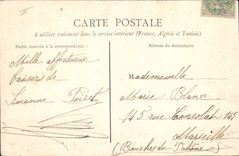 CARTE POSTALE
à utiliser seulement dans le service intérieur (France, Algérie et Tunisie)
Partie réservée à la correspondance:
Adresse du destinataire
Mille affectueux
baisers de
Mademoiselle
Marie Blanc
145 rue Consolat 145
Marseille
(Bouches du Rhône)